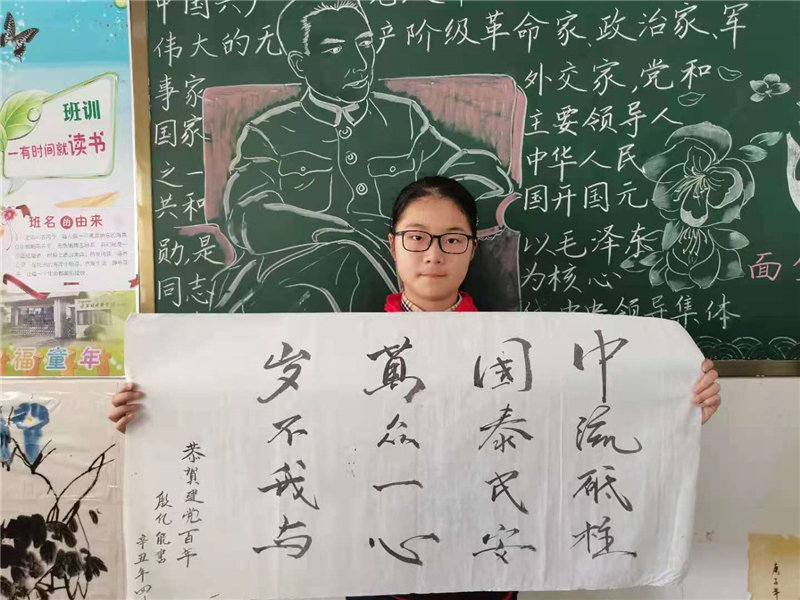 中国共产
伟大的无产阶级革命家、政治家、军
事家 外交家,党和
国家 主要领导人
之一 中华人民
共和 国开国元
勋,是 以毛泽东
同志 为核心
领导集体
面
班训
一有时间就读书
班名的由来
福童年
中流砥柱
国泰民安
萬众一心
岁不我与
恭贺建党百年
殷亿能书
辛丑年四